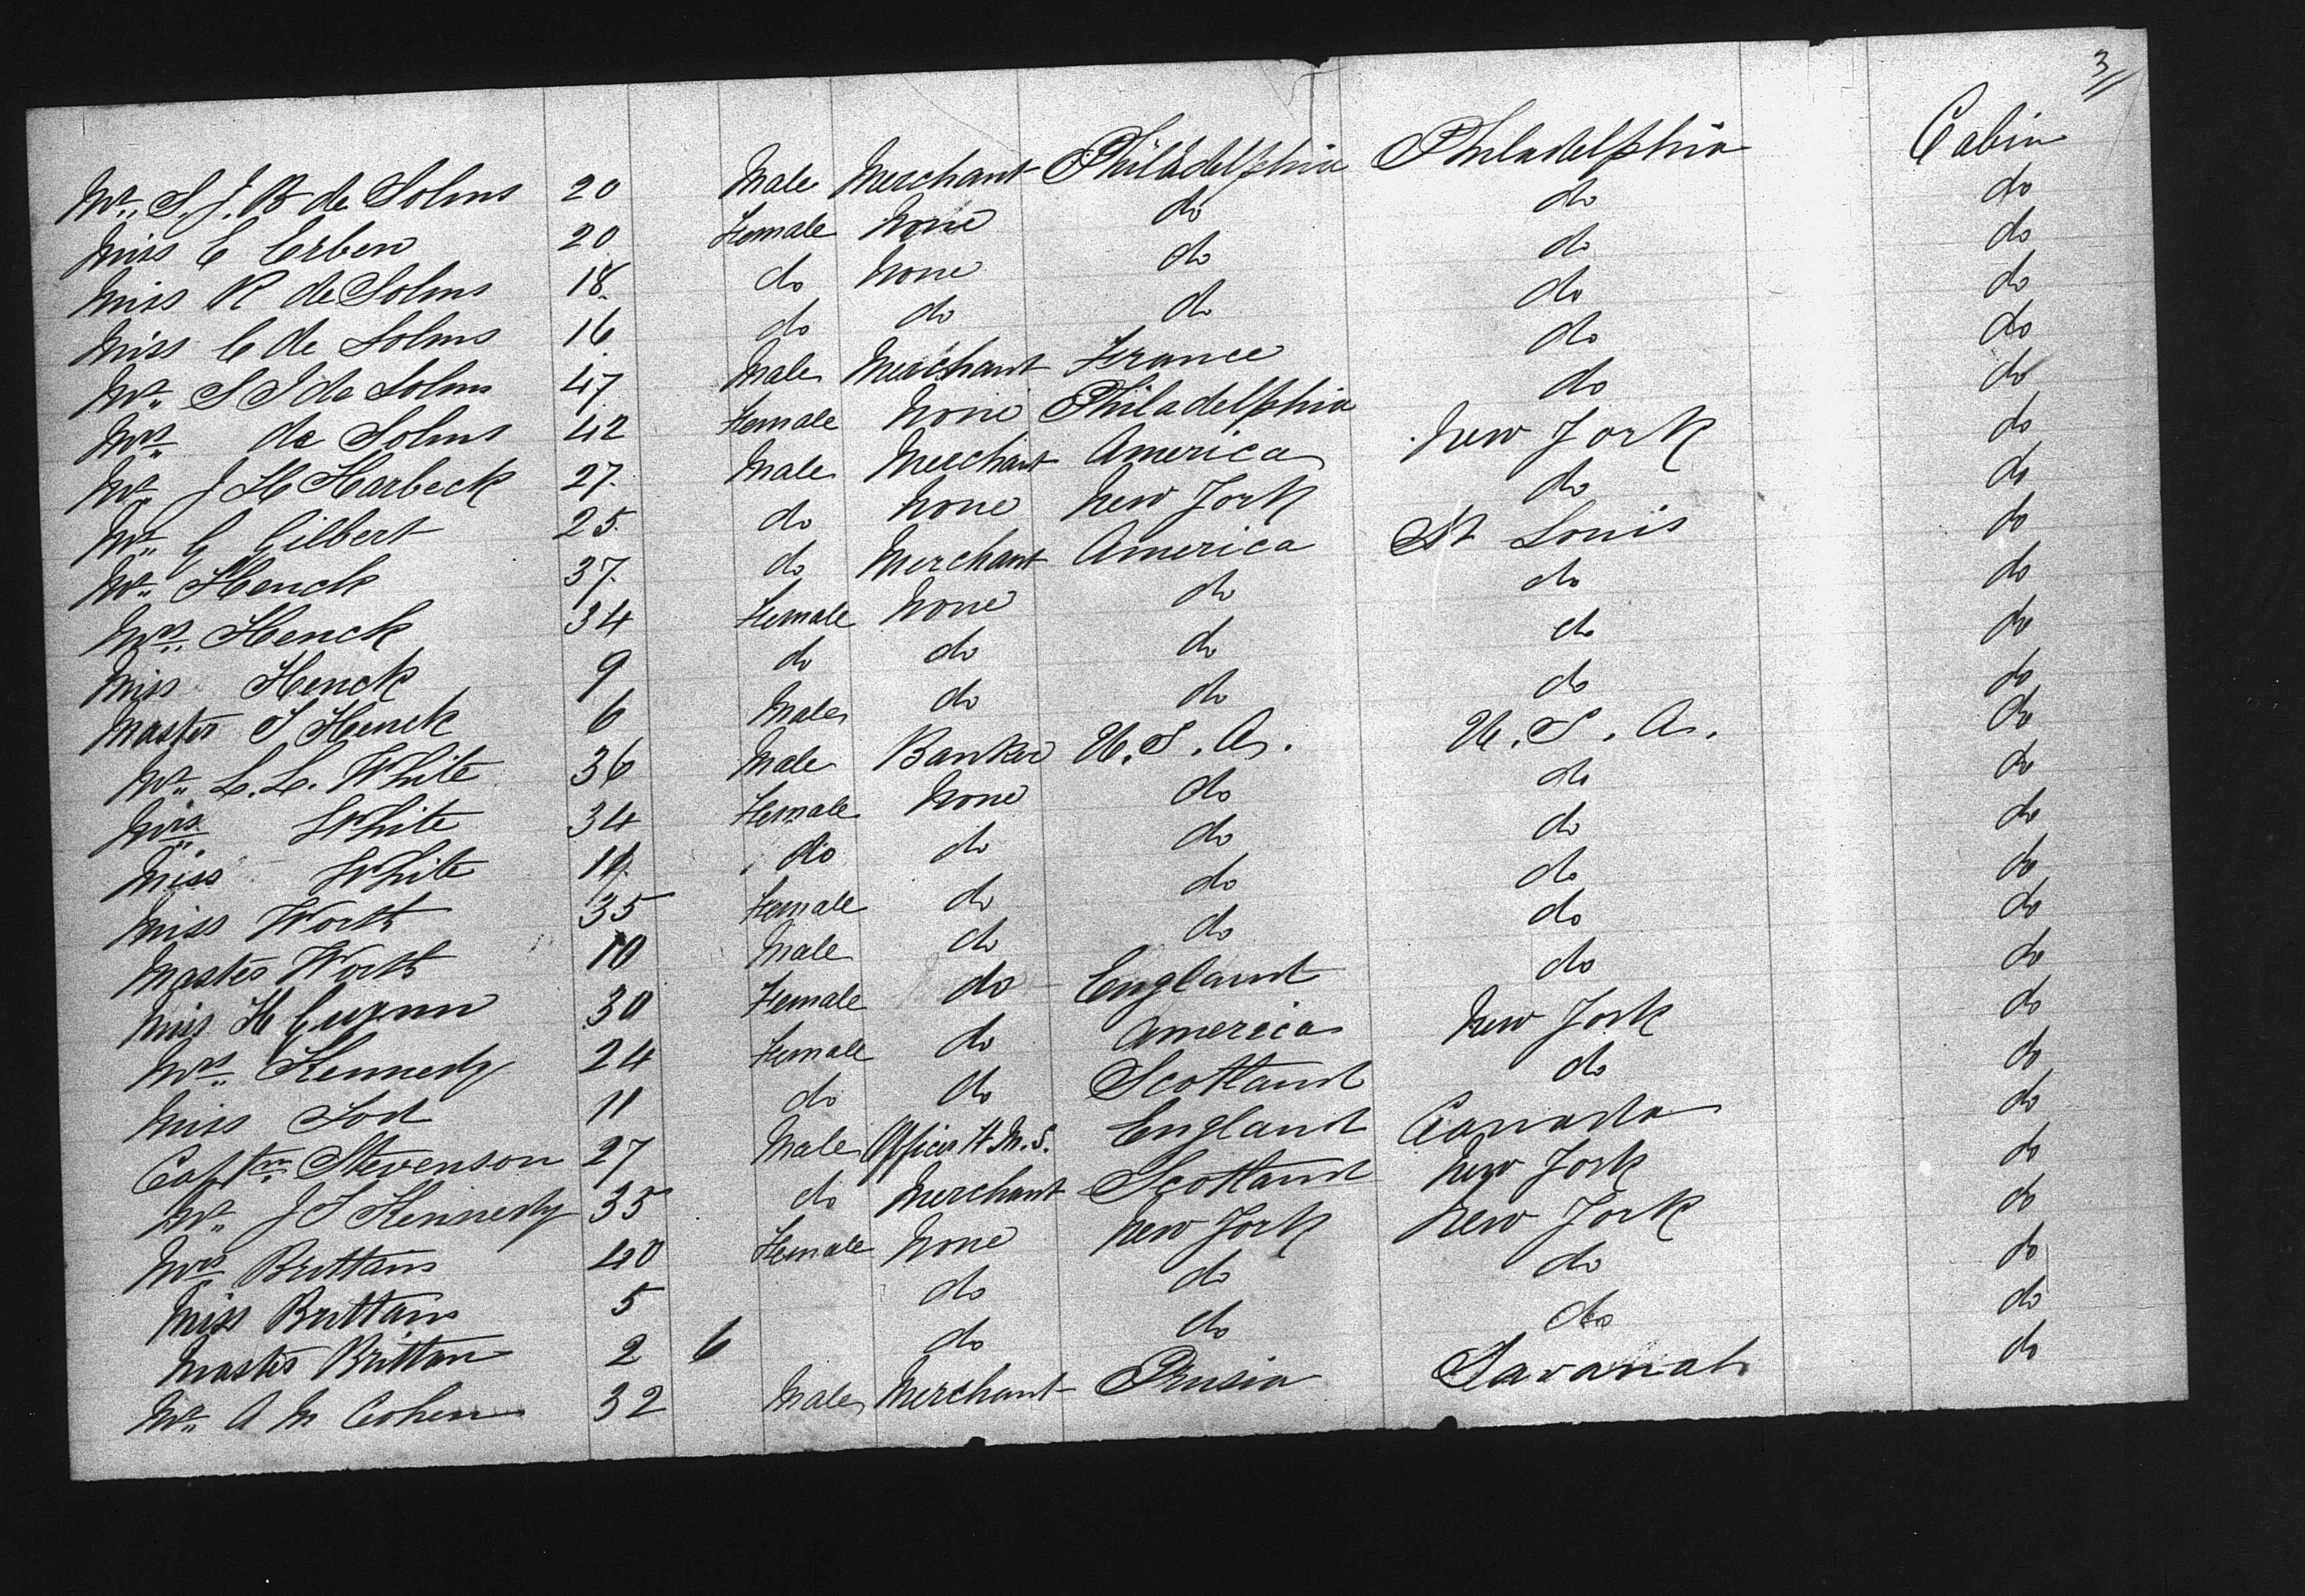 3
Mr. S. J. B de Solms 20 Male Merchant Philadelphia Philadelphia Cabin
Miss E Erben 20 Female None do do do
Miss R de Solms 18 do None do do do
Miss C de Solms 16 do do do do do
Mr. S J de Solms 47 Male Merchant France do do
Mrs de Solms 42 Female None Philadelphia do do
Mr J H Harbeck 27 Male Merchant America New York do
Mr. G Gilbert 25 do None New York do do
Mr. Henck 37 do Merchant America St Louis do
Mrs. Henck 34 Female None do do do
Miss Henck 9 do do do do do
Master J Henck 6 Male do do do do
Mr. L. L. White 36 Male Banker U. S. A. U. S. A. do
Mrs. White 34 Female None do do do
Miss White do do do do do
Miss Worth 35 Female do do do do
Master Worth 10 Male do do do do
Miss H 30 Female do England do do
Mrs. Kennedy 24 Female do America New York do
Miss Tod 11 do do Scotland do do
Captn. Stevenson 27 Male Officer H. M. S. England Canada do
Mr. J S Kennedy 35 do Merchant Scotland New York do
Mrs Brittan 40 Female None New York New York do
Miss Brittan 5 do do do do
Master Brittan 2 6 do do do do
Mr. A M Cohen 32 Male Merchant Prusia Savanah do